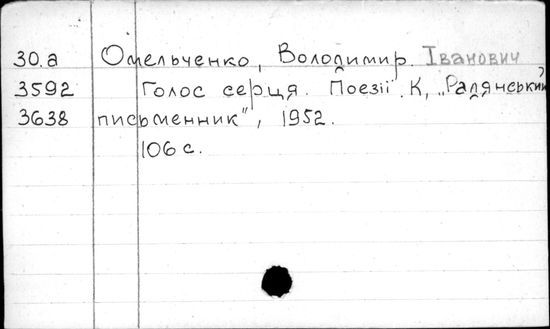 30.а Омельченко, Володимир Іванович
3592 Голос серця. Поезії. К, „Радянський
3638 письменник", 1952.
106 с.